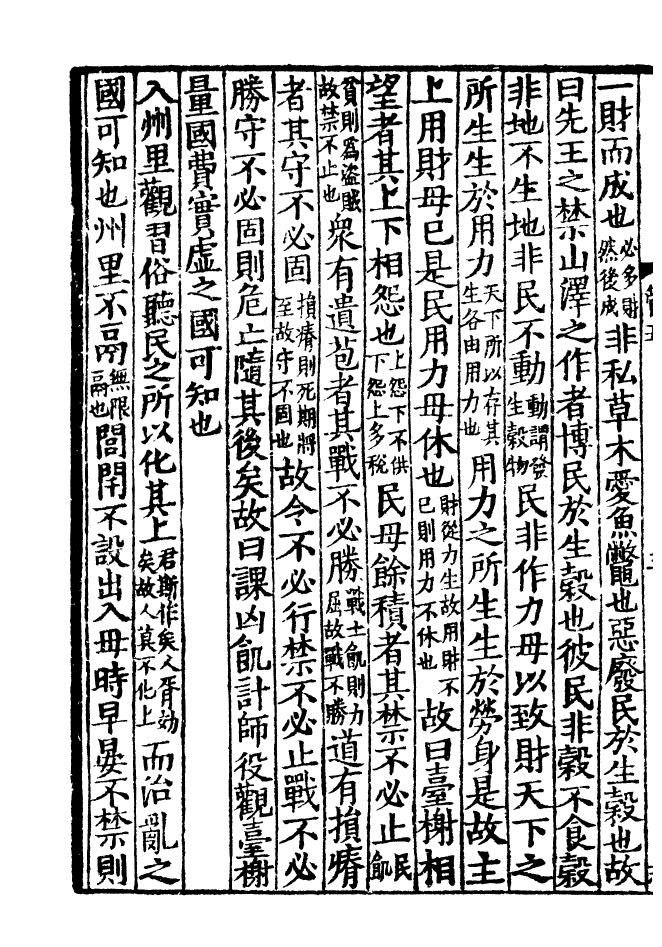 一財而成也必多財然後成非私草木愛魚鼈也惡廢民於生穀也故
曰先王之禁山澤之作者博民於生穀也彼民非穀不食穀
非地不生地非民不動動謂發生穀物民非作力毋以致財天下之
所生生於用力天下所以存其生各由用力也用力之所生生於勞身是故主
上用財毋已是民用力毋休也財從力生故用財不已則用力不休也故曰臺榭相
望者其上下相怨也上怨下不供下怨上多稅民毋餘積者其禁不必止民飢
貧則爲盜賊故禁不止也衆有遺苞者其戰不必勝戰士飢則力屈故戰不勝道有損瘠
者其守不必固損瘠則死期將至故守不固也故令不必行禁不必止戰不必
勝守不必固則危亡隨其後矣故曰課凶飢計師役觀臺榭
量國費實虛之國可知也
入州里觀習俗聽民之所以化其上君斯作矣人胥効矣故人莫不化上而治亂之
國可知也州里不鬲無限鬲也閭閈不設出入毋時早晏不禁則